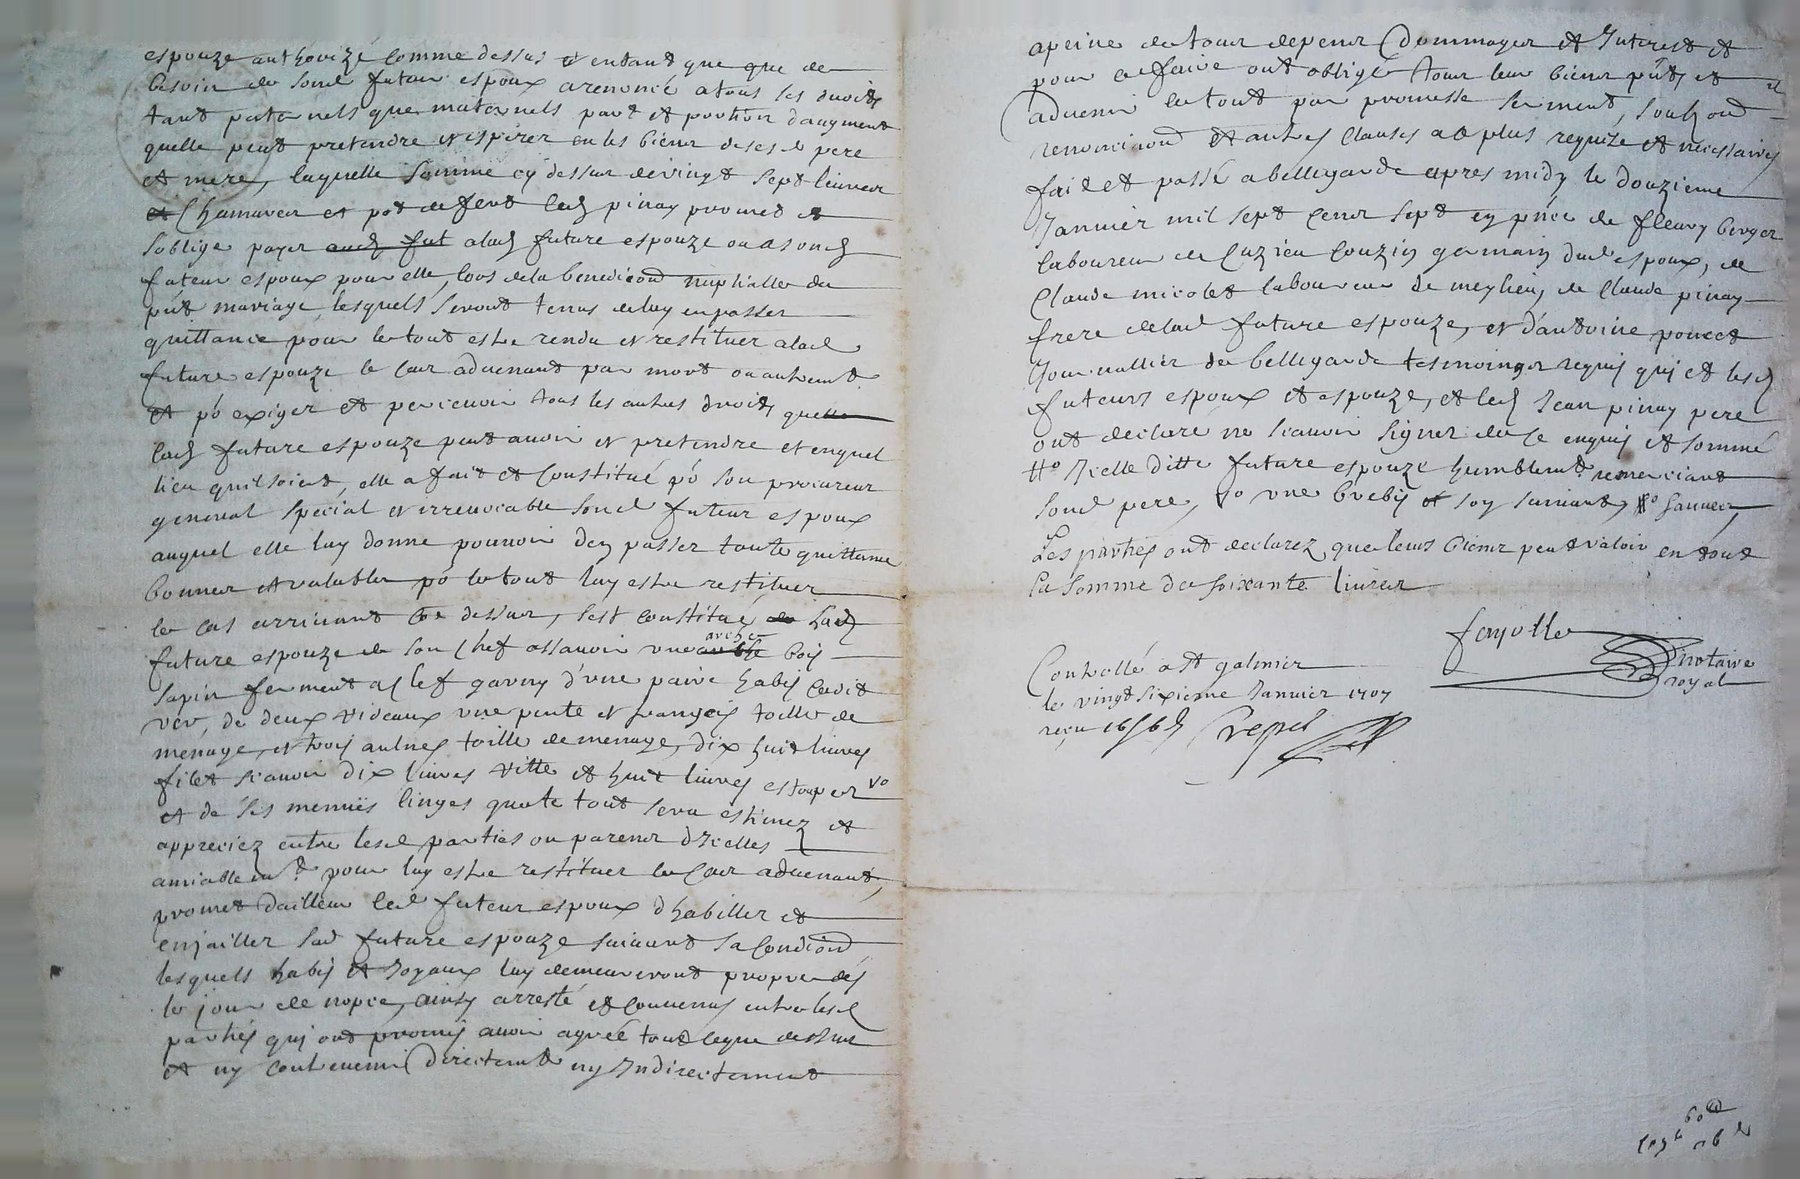 espouze authorizé comme dessus et entant que que de
besoin de sond futeur espoux a renoncé a tous ses droits
tant paternels que maternels part et portion daugment
quelle peut pretendre et esperer en les biens de sesd pere
et mere, laquelle somme cy dessus de vingt sept livres
et Chamarer et pot de fert led pinay promet et
soblige payer aud fut a lad future espouze ou a sond
futeur espoux pour elle, lors de la benediçond nuptialle du
pnt mariage, lesquels seront tenus de luy en passer
quittance pour le tout estre rendu et restituer a lad
future espouze le cas advenant par mort ou autremt
et po exiger et percevoir tous les autres droits quelle
lad future espouze peut avoir et pretendre et en quel
lieu quil soient, elle a fait et Constitué po son procureur
general special et irrevocable sond futeur espoux
auquel elle luy donne pouvoir den passer toute quittance
bonnes et valables po le tout luy estre restituer
le cas arrivant Cōe dessus, sest constitué de lad
future espouze de son chef assavoir une arche bois
sapin ferment a clef garny d'une paire habis cadit
vert, de deux rideaux une pente et
menage, et trois autres toille de menage, dix huit livres
filet scavoir dix livres ritte et huit livres estoupes vo
et de ses menuës linges que le tout sera estimez et
appreciez entre lesd parties ou parens dIcelles
amiablemt pour luy estre restituer le Cas advenant,
promet dailleur led futeur espoux dhabiller et
enjailler sad future espouze suivant sa Condiond
lesquels habis et Joyaux luy demeureront propre des
le jour de nopce, ainsy arresté et convenus entre lesd
parties quj ont promis avoir agreé tout ceque dessus
et ny contrevenir directemt ny Indirectement
a peine de tous depens Dommages et Interest et
pour ce faire ont obligé tous leur biens pnts et
advenir le tout par promesse serment, soubzond
renonciond et autres Clauses a ce plus requize et necessaires
fait et passé a bellegarde apres midy le douzieme
Janvier mil sept Cens sept en pnce de fleury berger
laboureur de Cuzieu Couzin germain dud espoux, de
Claude micolet laboureur de meylieu, de Claude pinay
frere de lad future espouze, et d'antoine poncet
Journallier de bellegarde tesmoings requis quj et lesd
futeurs espoux et espouze, et led Jean pinay pere
ont declaré ne scavoir signer de ce enquis et sommé
Icelle ditte future espouze humblemt remerciant
sond pere, vo une brebis et soy suivant,
Les parties ont declarez que leurs biens peut valoir en tout
la somme de soixante livres
fayolle
notaire
royal
Controllé a st galmier
le vingt sixieme Janvier 1707
reçu